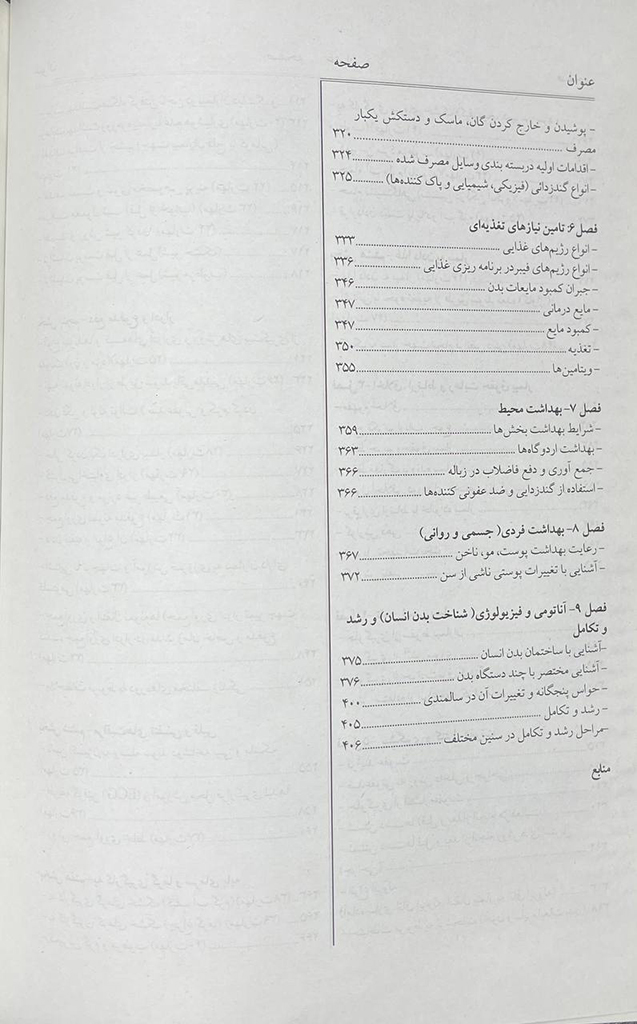 عنوان
صفحه
- پوشیدن و خارج کردن گان، ماسک و دستکش یکبار
مصرف ........ ۳۲۰
- اقدامات اولیه در بسته بندی وسایل مصرف شده ........ ۳۲۴
- انواع گندزدائی (فیزیکی، شیمیایی و پاک کننده‌ها) ........ ۳۲۵
فصل ۶: تامین نیازهای تغذیه‌ای
- انواع رژیم‌های غذایی ........ ۳۳۳
- انواع رژیم‌های فیبر در برنامه ریزی غذایی ........ ۳۳۶
- جبران کمبود مایعات بدن ........ ۳۴۶
- مایع درمانی ........ ۳۴۷
- کمبود مایع ........ ۳۴۷
- تغذیه ........ ۳۵۰
- ویتامین‌ها ........ ۳۵۵
فصل ۷- بهداشت محیط
- شرایط بهداشت بخش‌ها ........ ۳۵۹
- بهداشت اردوگاه‌ها ........ ۳۶۳
- جمع آوری و دفع فاضلاب در زباله ........ ۳۶۶
- استفاده از گندزدایی و ضد عفونی کننده‌ها ........ ۳۶۶
فصل ۸- بهداشت فردی( جسمی و روانی)
- رعایت بهداشت پوست، مو، ناخن ........ ۳۶۷
- آشنایی با تغییرات پوستی ناشی از سن ........ ۳۷۲
فصل ۹- آناتومی و فیزیولوژی( شناخت بدن انسان) و رشد
و تکامل
-آشنایی با ساختمان بدن انسان ........ ۳۷۵
- آشنایی مختصر با چند دستگاه بدن ........ ۳۷۶
- حواس پنجگانه و تغییرات آن در سالمندی ........ ۴۰۰
- رشد و تکامل ........ ۴۰۵
-مراحل رشد و تکامل در سنین مختلف ........ ۴۰۶
منابع